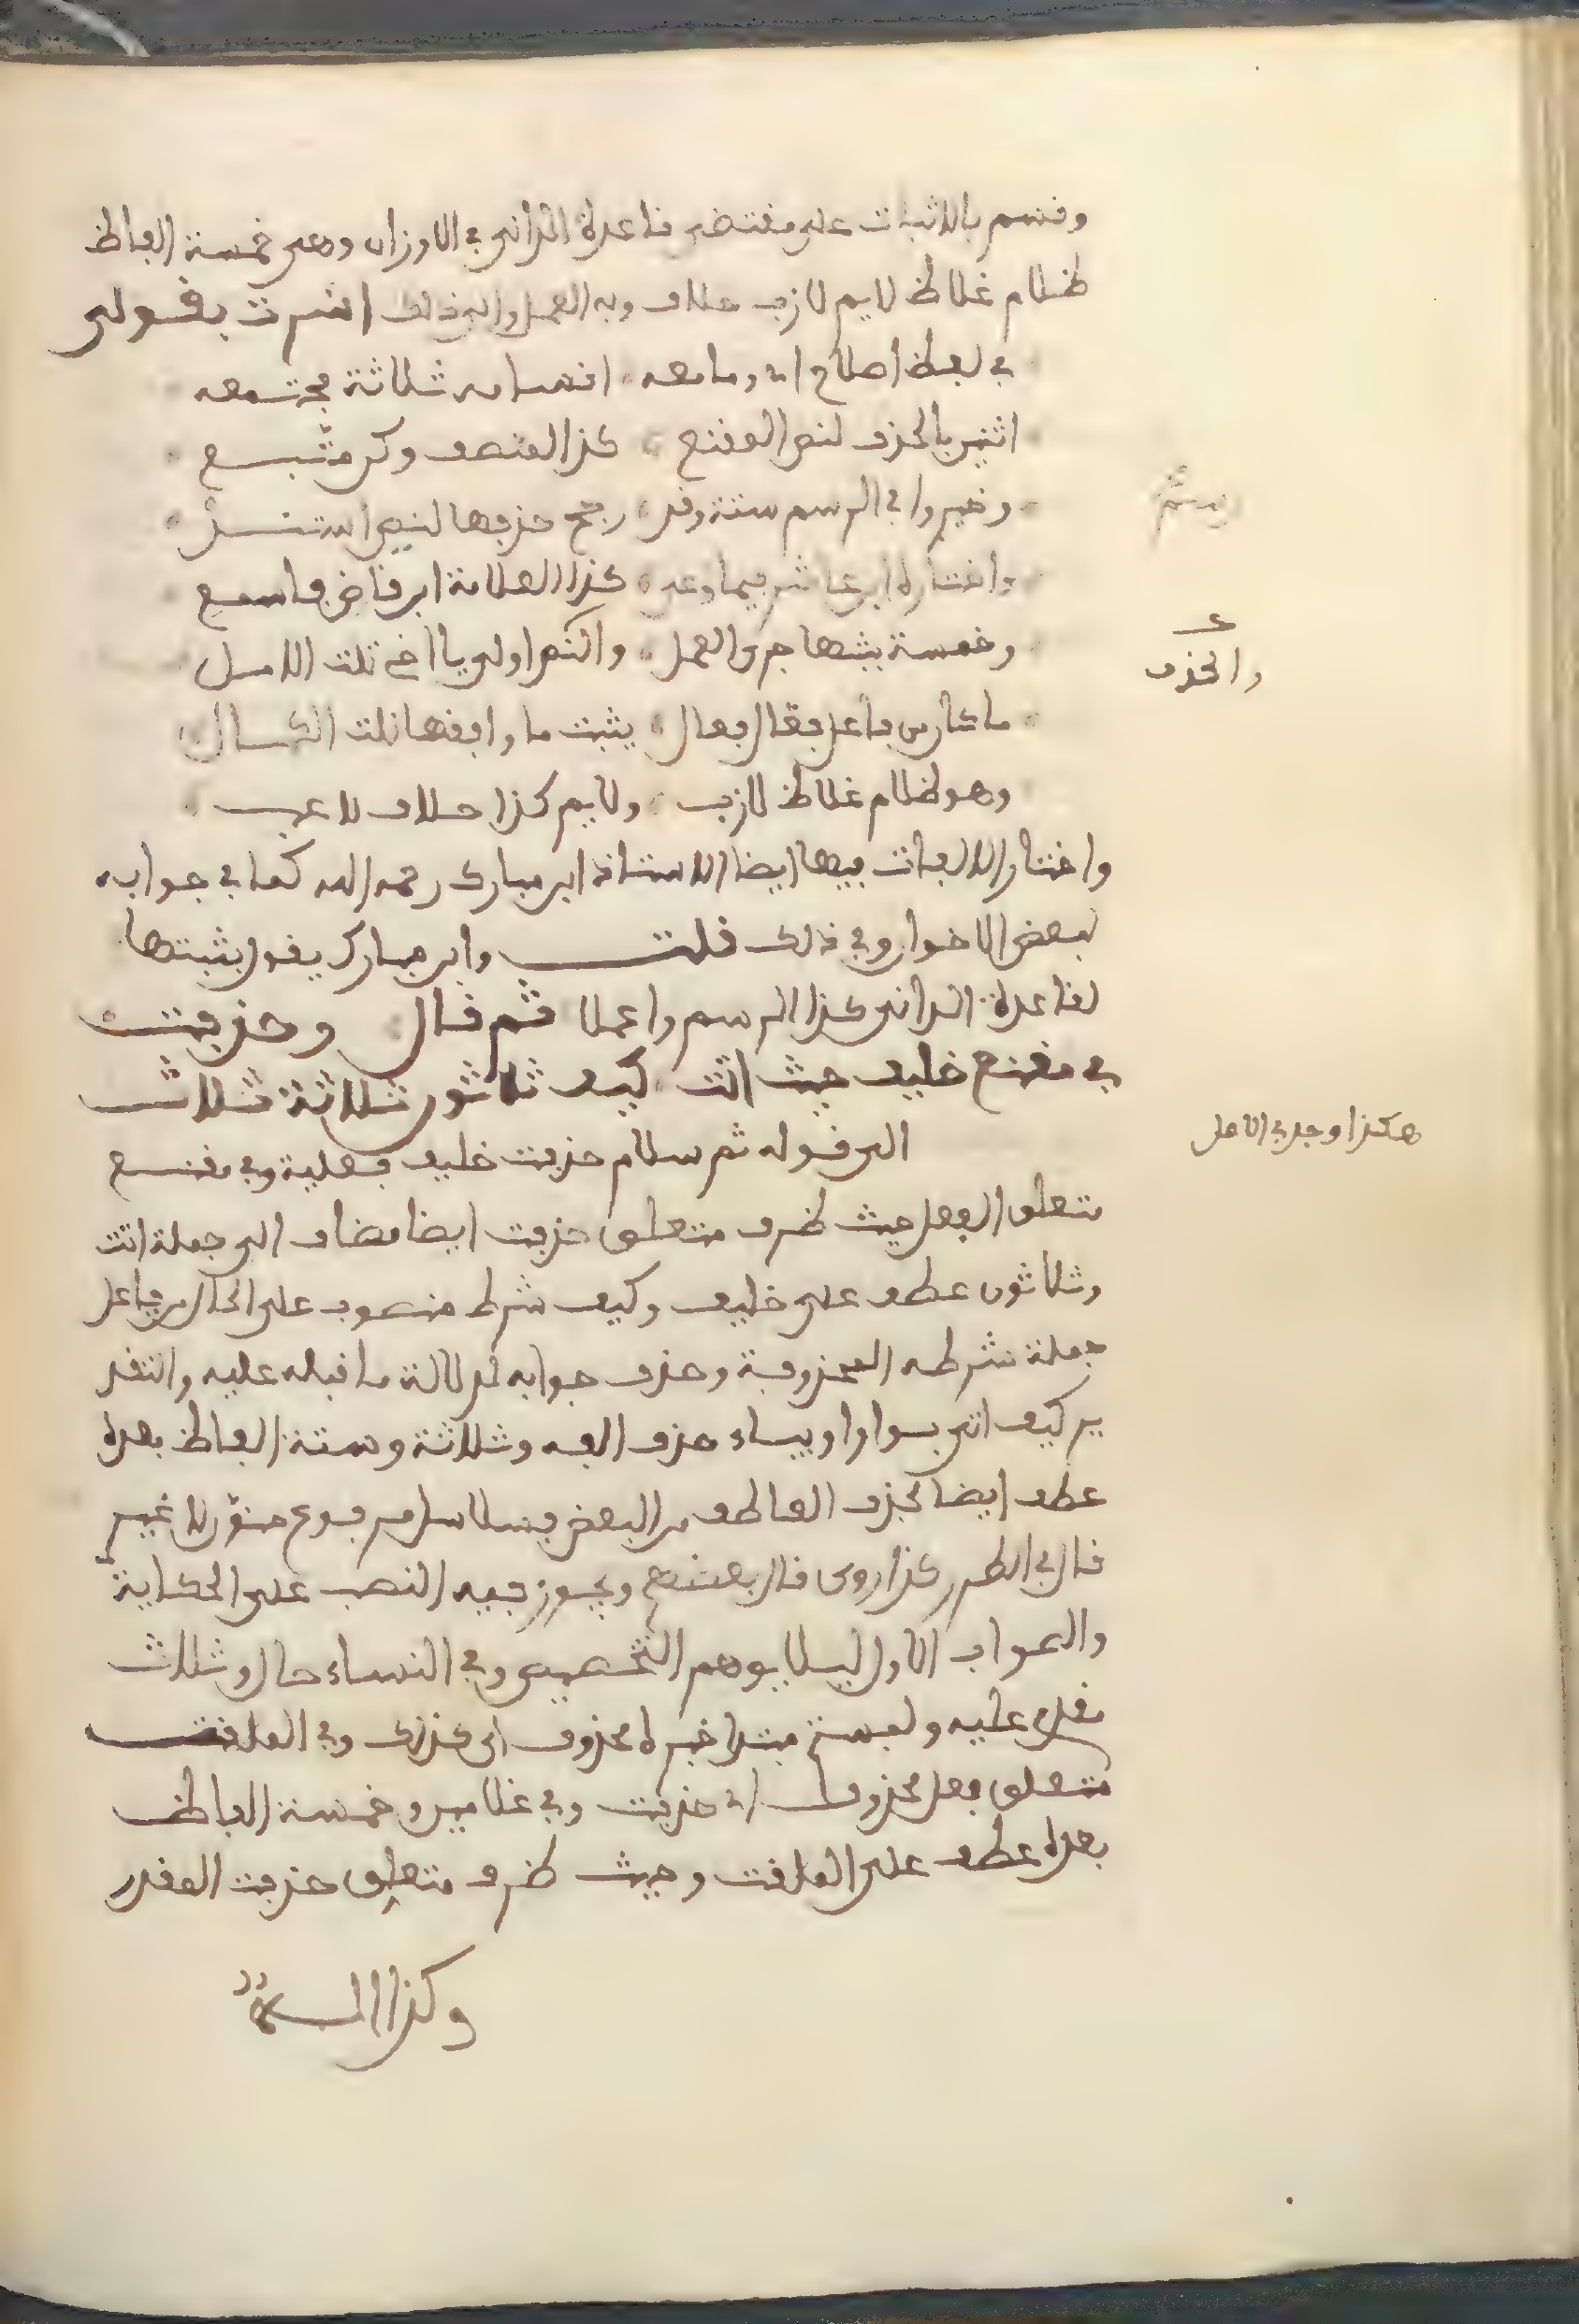 وقسم بالاثبات على مقتضى قاعدة الداني في الاوزان وهي خمسة الفاظ
ظلام غلاظ لايم لازب علاف وبه العمل والى ذلك اشرت بقولى
في لفظ اصلاح اي وما معه اقسامه ثلاثة مجتمعه
اثنين بالحذف لنص المقنع كذا المنصف وكن متبع
وخيروا في الرسم ستة وقد رجح حذفها لنص استند
واختاره ابن عاشر فيما وعى كذا العلامة ابن قاض فاسمع
وخمسة بثبتها جرى العمل والكتم اولى يا اخي تلت الامل
ما كان من فاعل فقال فعال يثبت ما وافقها نلت الكمال
وهو ظلام غلاظ لازب ولايم كذا حلاف لاعب
واختار الالفات فيها ايضا الاستاذ ابن مبارك رحمه الله كما في جوابه
لبعض الاخوان وفي ذلك قلت وابن مبارك يقول بثبتها
لقاعدة الداني كذا الرسم واعملا ثم قال وحذفت
في مقنع خليف حيث اتت كيف ثلاثون ثلاثة ثلاث
الى قوله ثم سلام حذفت خليف فعلية وفي مقنع
متعلق الفعل حيث ظرف متعلق حذفت ايضا مضاف الى جملة اتت
وثلاثون عطف على خليف وكيف شرط منصوب على الحال من فاعل
جملة شرطه المحذوفة وحذف جوابه لدلالة ما قبله عليه والتقد
ير كيف اتى بواو او بياء حذف الفه وثلاثة وستة الفاظ بعده
عطف ايضا بحذف العاطف من البعض فسلاسل مرفوع منون لا غير
قال في الطرر كذا روى قال بعضهم ويجوز فيه النصب على الحكاية
والصواب الاول ليلا يوهم التخصيص وفي النساء حال وثلاث
مقدم عليه ولمستم مبتدا خبره محذوف اي كذلك وفي الملاقت
متعلق بفعل محذوف اي حذفت وفي غلامين وخمسة الفاظ
بعده عطف على الملاقت وحيث ظرف متعلق حذفت المقدر
وكذا
والحذف
هكذا وجد في الاصل